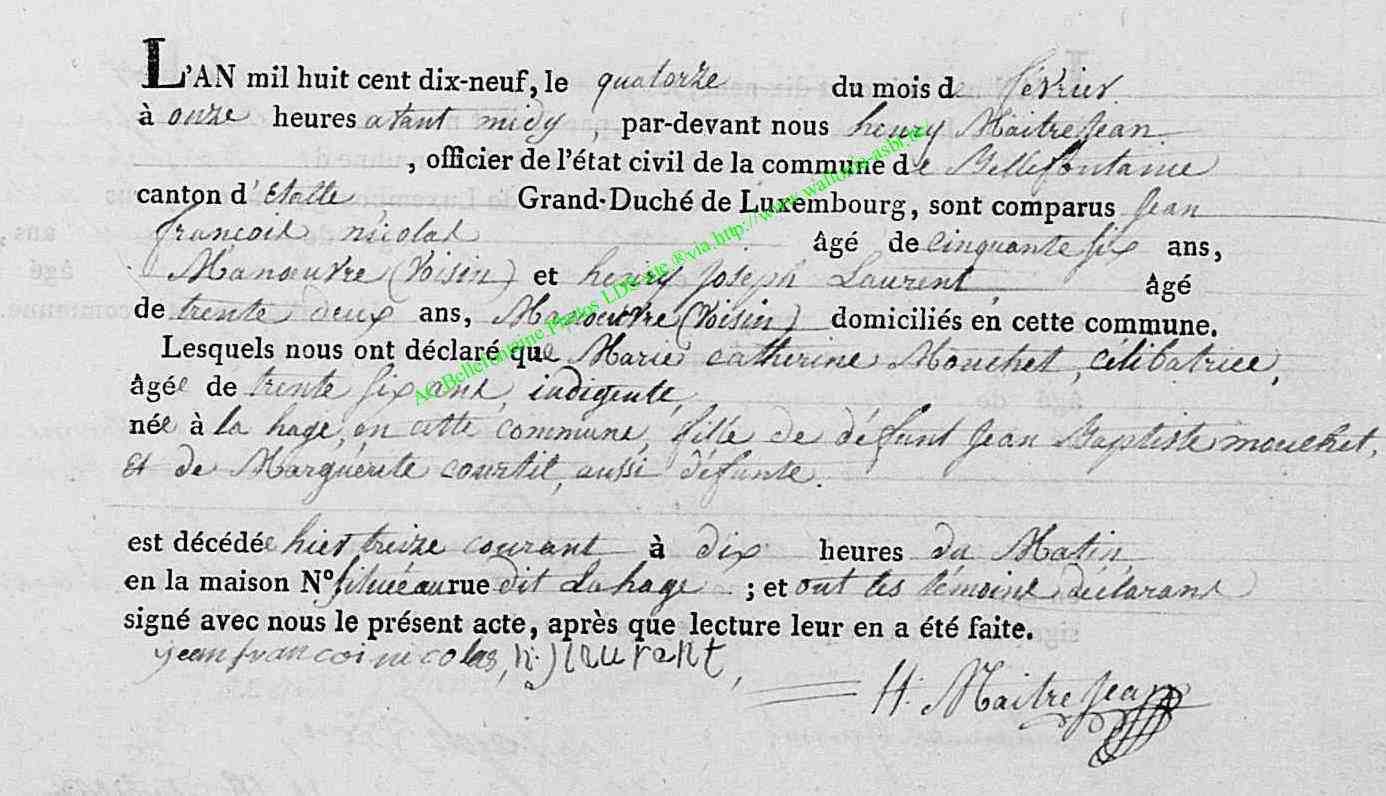 L'AN mil huit cent dix-neuf, le quatorze du mois de février
à onze heures avant midy, par-devant nous henry MaitreJean
, officier de l'état civil de la commune de Bellefontaine
canton d'Etalle Grand-Duché de Luxembourg, sont comparus Jean
françois nicolas âgé de cinquante six ans,
Manœuvre (Voisin) et henry Joseph Laurent, âgé
de trente deux ans, Manœuvre (Voisin) domiciliés en cette commune.
Lesquels nous ont déclaré que Marie catherine Mouchet, célibatrice,
âgée de trente six ans, indigente,
née à la hage, en cette commune, fille de défunt Jean Baptiste mouchet,
Et de Marguerite courtit, aussi défunte.
est décédée hier treize courant à dix heures du Matin
en la maison N° située au rue dit Lahage ; et ont les témoins déclarans
signé avec nous le présent acte, après que lecture leur en a été faite.
jeanfrancoinicolas, h.j laurent,
H. MaitreJean
AC Bellefontaine Photos LDS via http://www.wallonia-asbl.be/